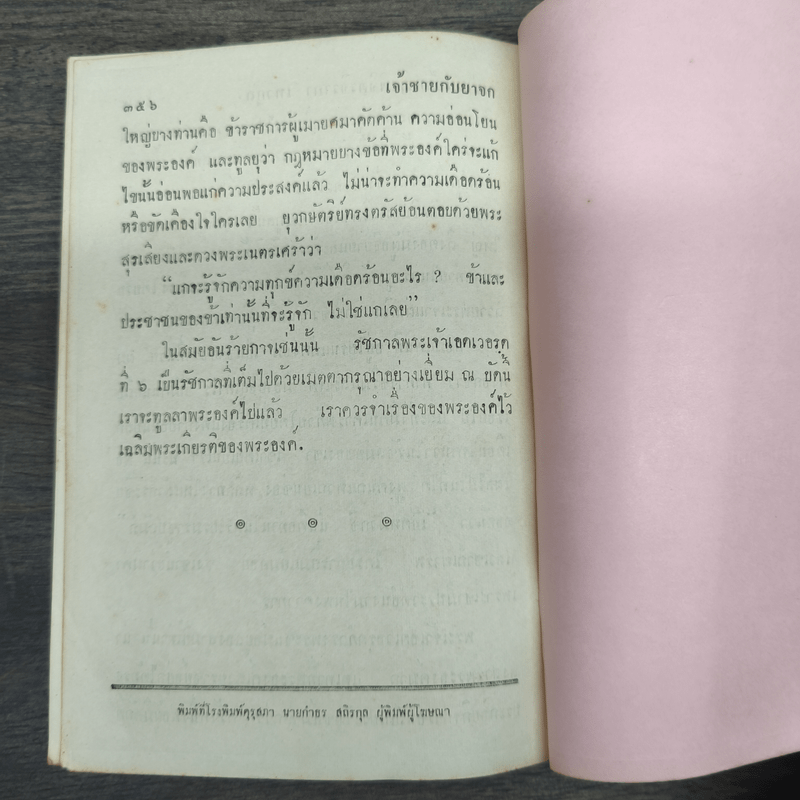 ๓๕๖
เจ้าชายกับยาจก
ใหญ่บางท่านคือ ข้าราชการผู้เมายศมาคัดค้าน ความอ่อนโยน
ของพระองค์ และทูลยุว่า กฎหมายบางข้อที่พระองค์ใคร่จะแก้
ไขนั้นอ่อนพอแก่ความประสงค์แล้ว ไม่น่าจะทำความเดือดร้อน
หรือขัดเคืองใจใครเลย ยุวกษัตริย์ทรงตรัสย้อนตอบด้วยพระ
สุรเสียงและดวงพระเนตรเศร้าว่า
"แกจะรู้จักความทุกข์ความเดือดร้อนอะไร ? ข้าและ
ประชาชนของข้าเท่านั้นที่จะรู้จัก ไม่ใช่แกเลย"
ในสมัยอันร้ายกาจเช่นนั้น รัชกาลพระเจ้าเอดเวอรด
ที่ ๖ เป็นรัชกาลที่เต็มไปด้วยเมตตากรุณาอย่างเยี่ยม ณ บัดนี้
เราจะทูลลาพระองค์ไปแล้ว เราควรจำเรื่องของพระองค์ไว้
เฉลิมพระเกียรติของพระองค์.
พิมพ์ที่โรงพิมพ์คุรุสภา นายกำธร สถิรกุล ผู้พิมพ์ผู้โฆษณา